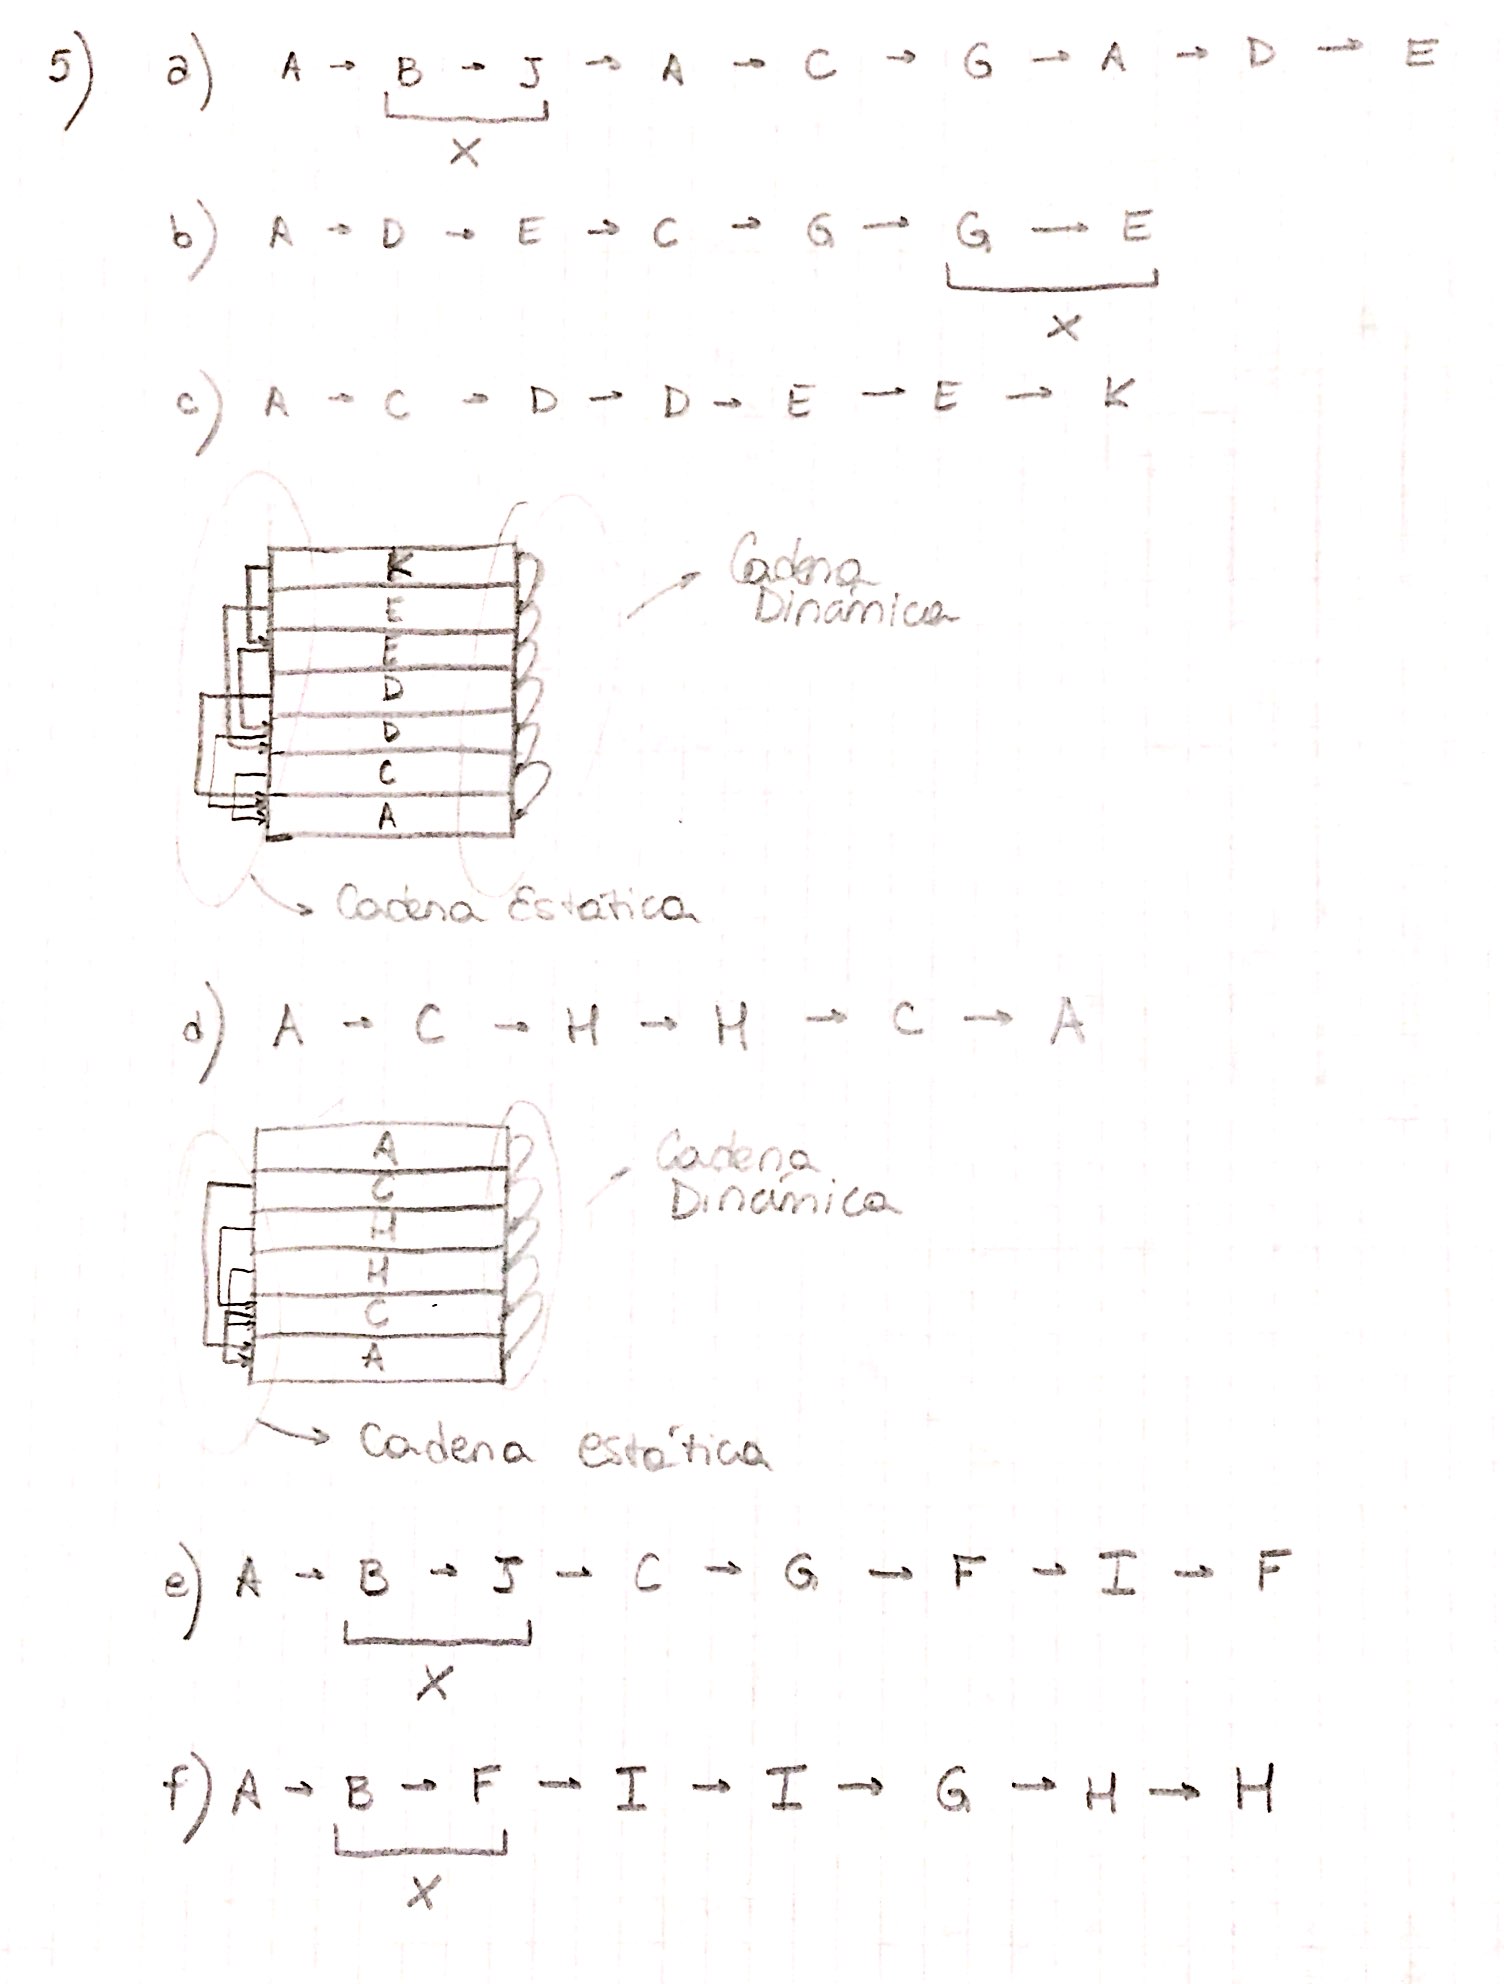 5) a) A → B → J → A → C → G → A → D → E
X
b) A → D → E → C → G → G → E
X
c) A → C → D → D → E → E → K
K
E
E
D
D
C
A
Cadena
Dinámica
Cadena Estática
d) A → C → H → H → C → A
A
C
H
H
C
A
Cadena
Dinámica
Cadena estática
e) A → B → J → C → G → F → I → F
X
f) A → B → F → I → I → G → H → H
X